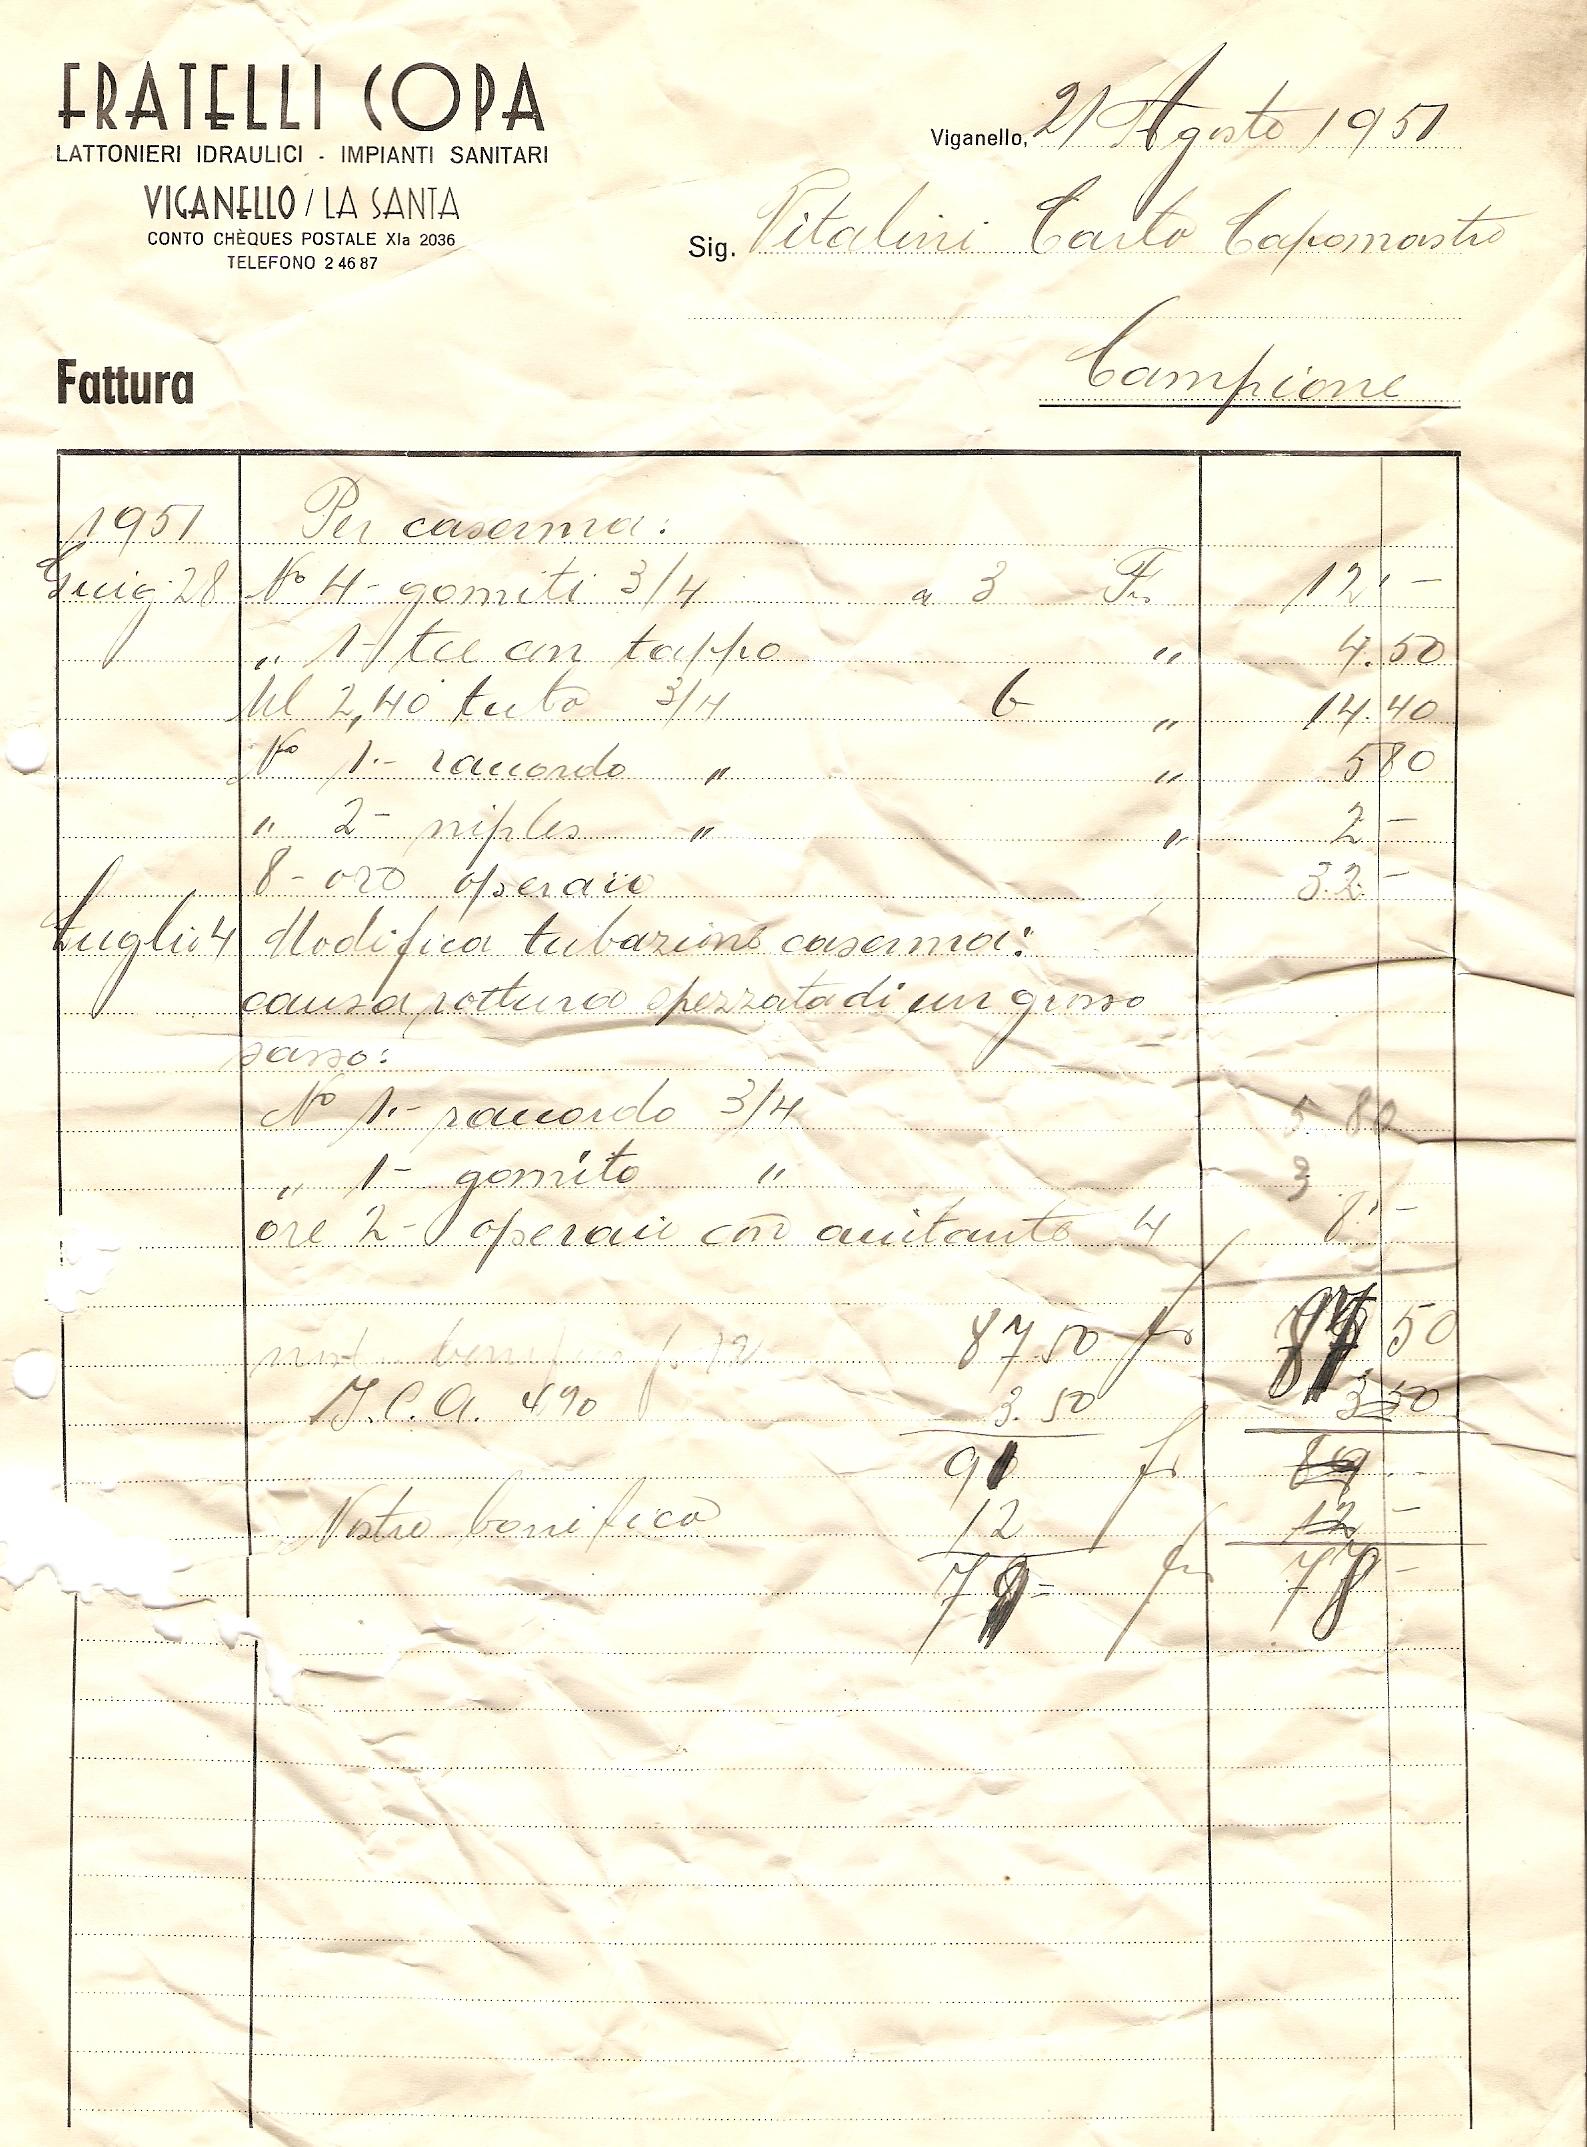 FRATELLI COPA
LATTONIERI IDRAULICI - IMPIANTI SANITARI
VIGANELLO / LA SANTA
CONTO CHÈQUES POSTALE XIa 2036
TELEFONO 2 46 87
Viganello, 21 Agosto 1951
Sig. Vitalini Carlo Capomastro
Campione
Fattura
1951 Per caserma:
Giug. 28 No 4 - gomiti 3/4 a 3 Fr. 12.-
" 1- tee con tappo " 4.50
Ml 2,40 tubo 3/4 6 " 14.40
No 1.- raccordo " " 5 80
" 2- niples " " 2 -
8- ore operaio 32.-
Luglio 4 Modifica tubazione caserma:
causa rottura spezzata di un grosso
sasso:
No 1.- raccordo 3/4 5 80
" 1- gomito " 3
ore 2- operaio con aiutante 4 8.-
87.50 fr 87 50
I.C.A. 4% 3.50 3 50
91 fr 89
Nostro bonifico 12 12 -
79 = fr 78 -